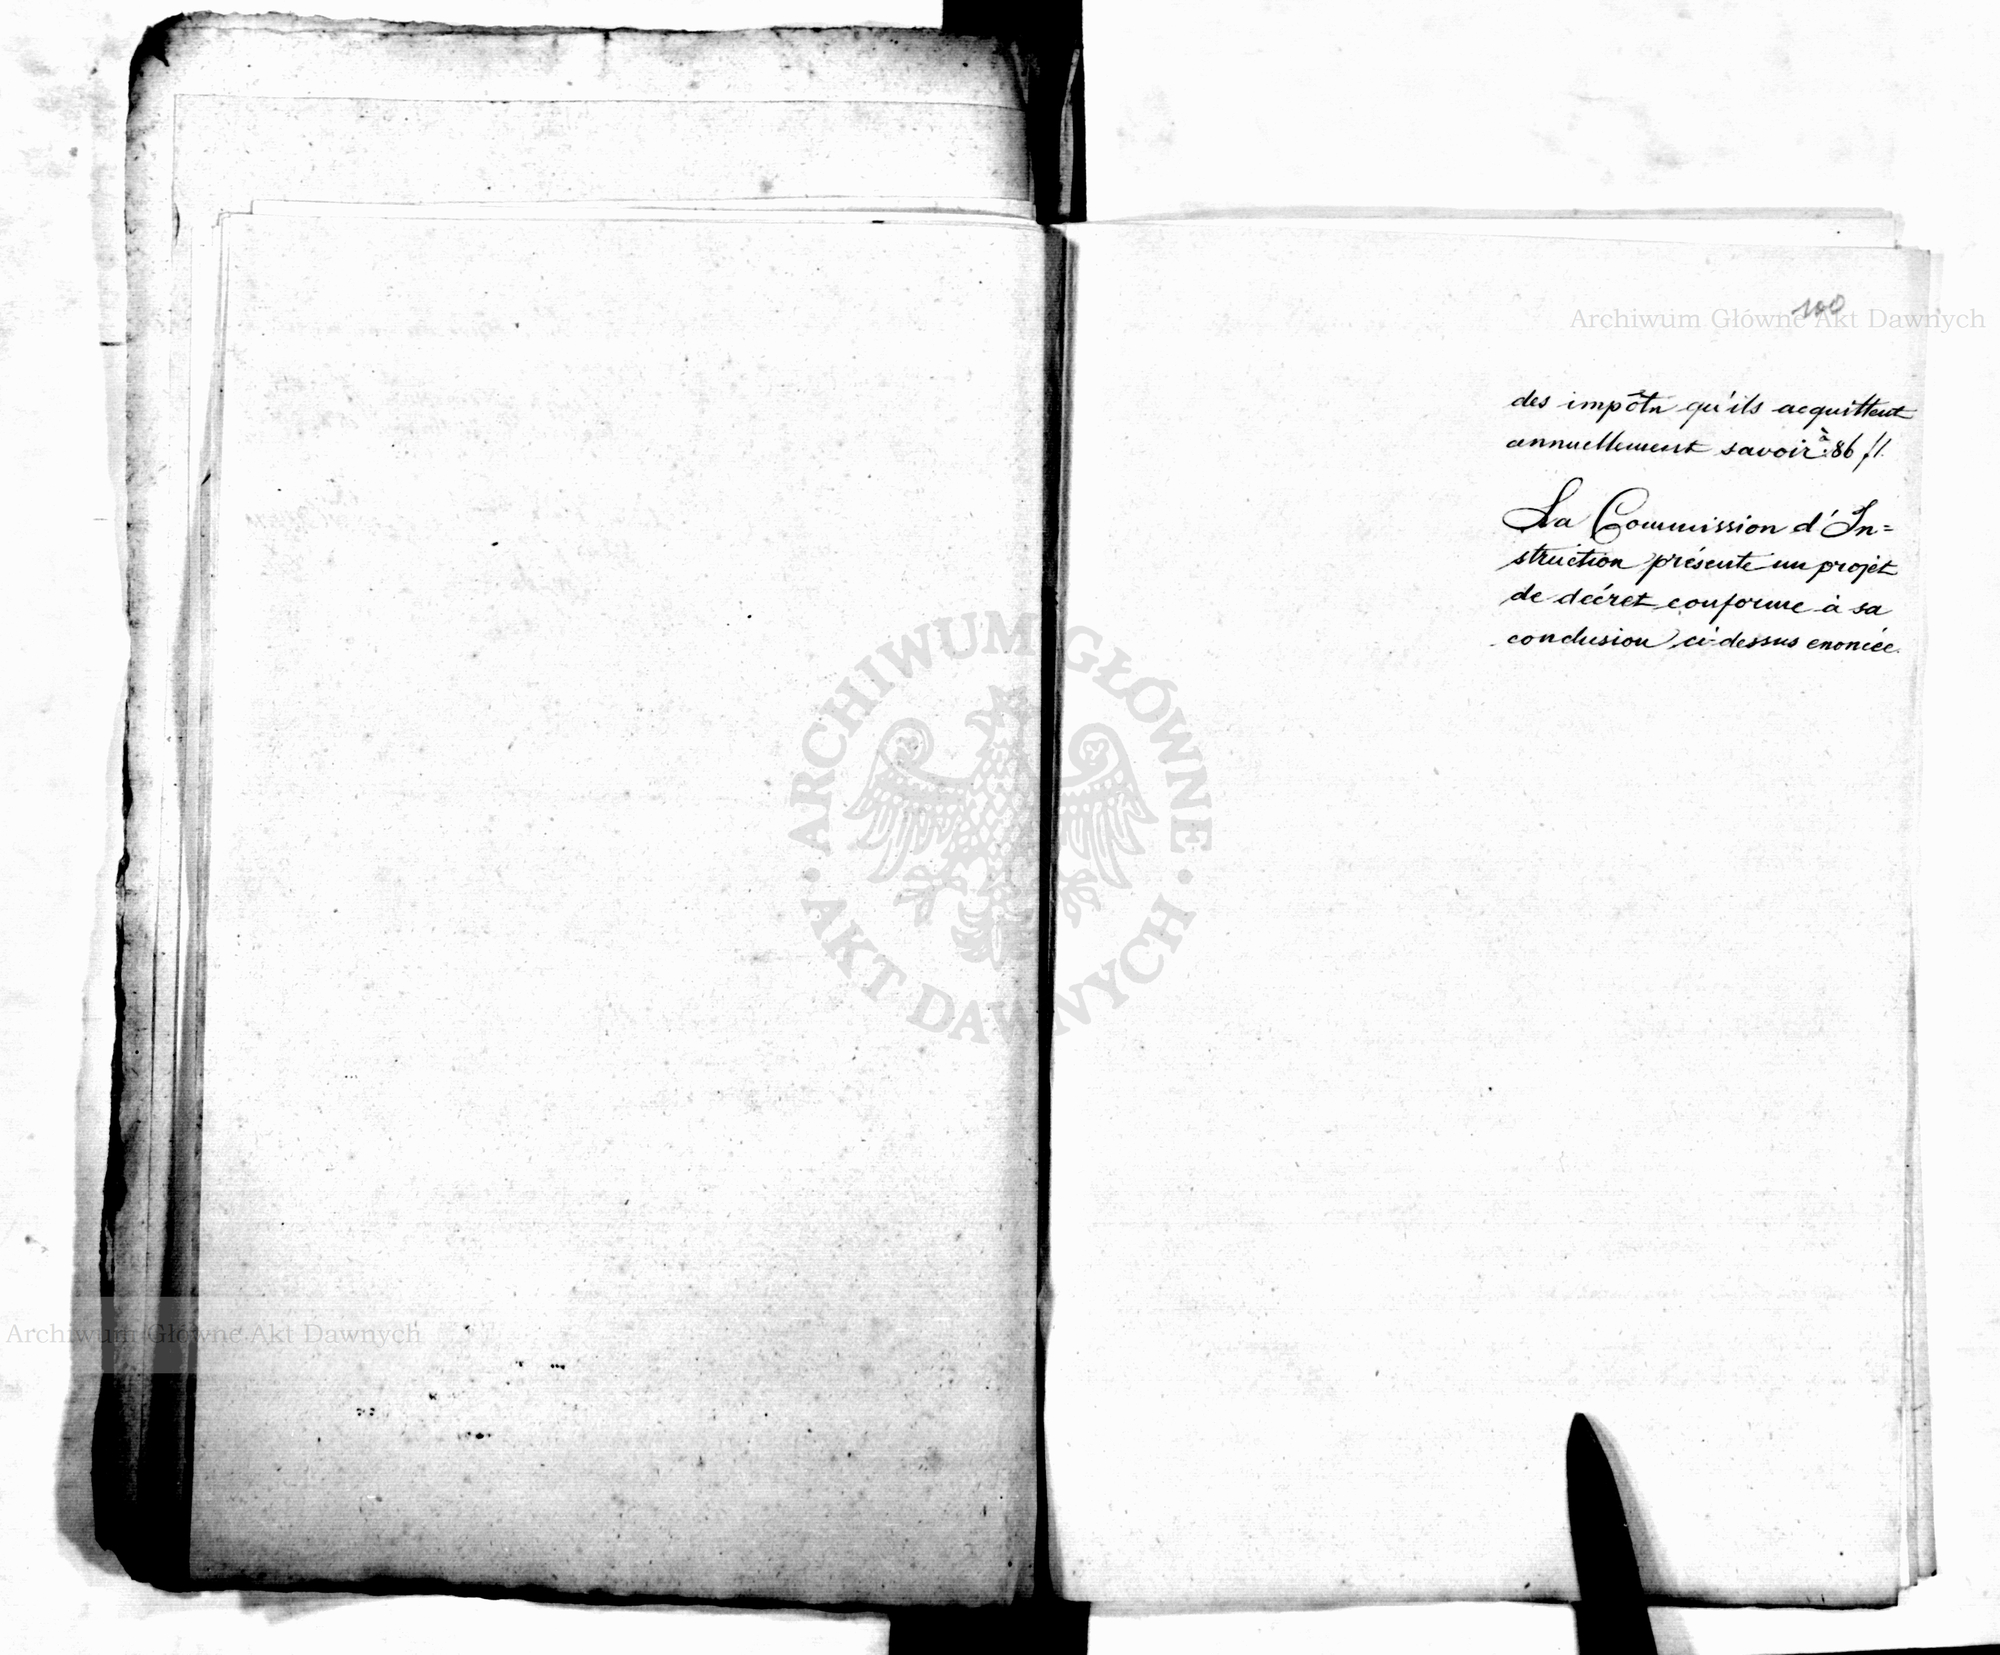 100
Archiwum Główne Akt Dawnych
des impôts qu'ils acquittent
annuellement savoir à 86 fl.
La Commission d'In=
struction présente un projet
de décret conforme à sa
conclusion ci-dessus enoncée.
ARCHIWUM GŁÓWNE
AKT DAWNYCH
Archiwum Główne Akt Dawnych